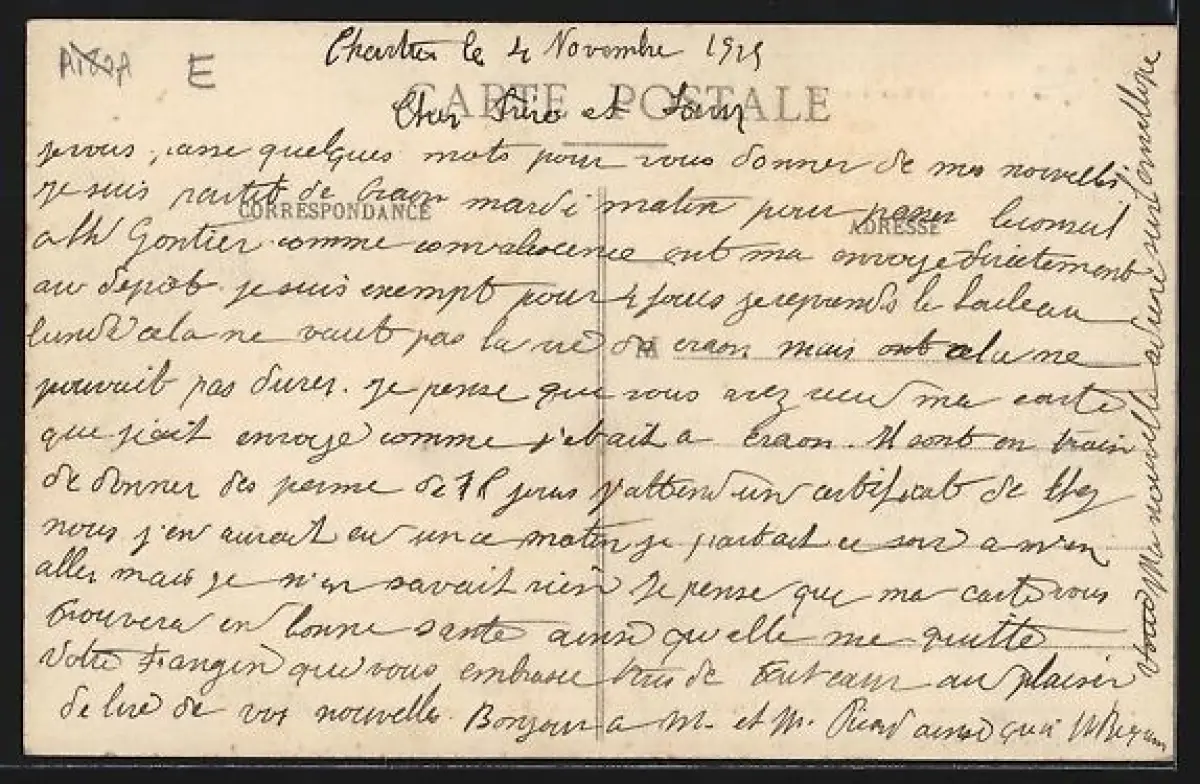 E
Chartres le 4 Novembre 1915
CARTE POSTALE
Cher Frère et Sœur
je vous quelques mots pour vous donner de mes nouvelles
CORRESPONDANCE
ADRESSE
je suis partit de Craon mardi matin pour passer le conseil
Gontier comme convalescence ont ma envoye directement
au depot je suis exempt pour 4 jours je reprends le
lundi cela ne vaut pas la vie de craon mais ont cela ne
pouvait pas durer. Je pense que vous avez reçu ma carte
que j'ait envoyé comme j'etait a craon. Il sont en train
de donner des perme de jours j'attend un certificat de chez
nous j'en aurait eu un ce matin je partait ce soir a m'en
aller mais je n'en savait rien Je pense que ma carte vous
trouvera en bonne santé ainsi qu'elle me quitte
Votre Frangin que vous embrasse tous de tout cœur au plaisir
de lire de vos nouvelles. Bonjour a M. et M. Picard ainsi qua
Ma nouvelle adresse sur l'enveloppe